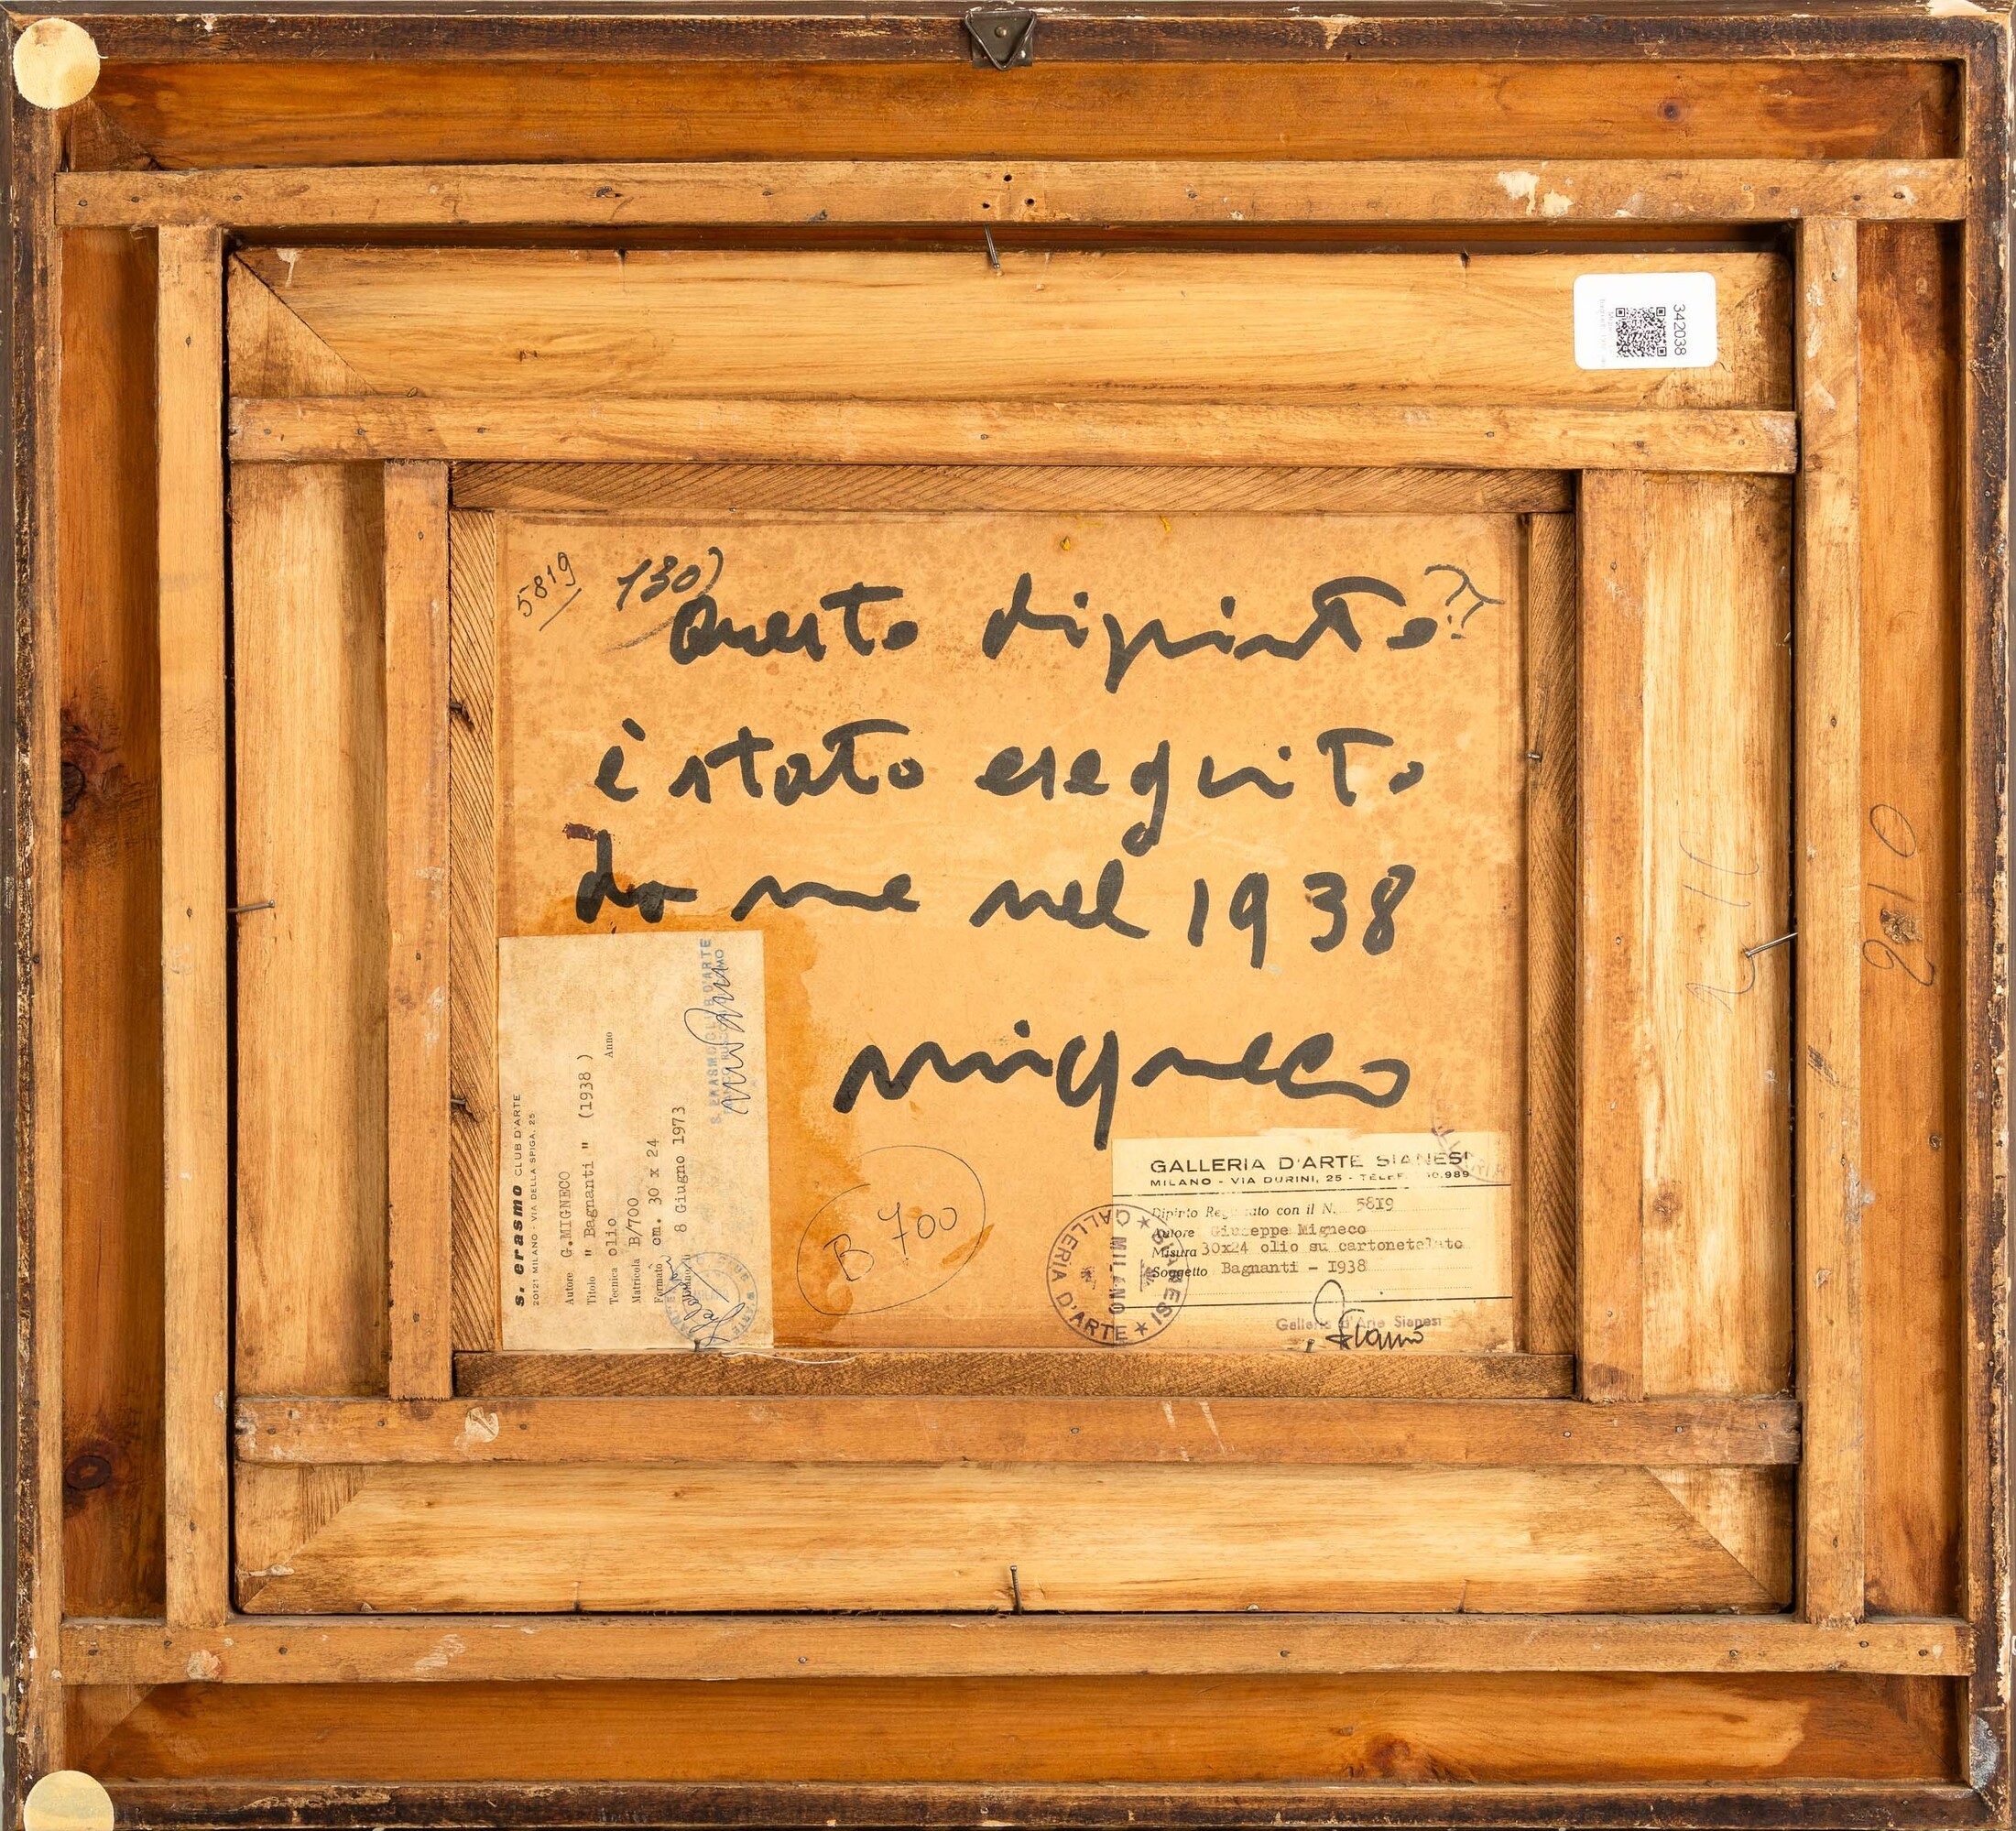 342038
5819
130)
??
Questo dipinto
è stato eseguito
da me nel 1938
Migneco
s. erasmo CLUB D'ARTE
20121 MILANO - VIA DELLA SPIGA, 25
Autore G.MIGNECO
Titolo " Bagnanti " (1938 )
Anno
Tecnica olio
Matricola B/700
Formato cm. 30 x 24
Milano, 8 Giugno 1973
S. ERASMO CLUB D'ARTE
B 700
GALLERIA D'ARTE SIANESI
MILANO - VIA DURINI, 25 - TELEF. 0.989
Dipinto Reg ato con il N. 5819
Autore Giuseppe Migneco
Misura 30x24 olio su cartonetelato
Soggetto Bagnanti - I938
Galleria d'Arte Sianesi
GALLERIA D'ARTE ★ SIANESI ★
MILANO